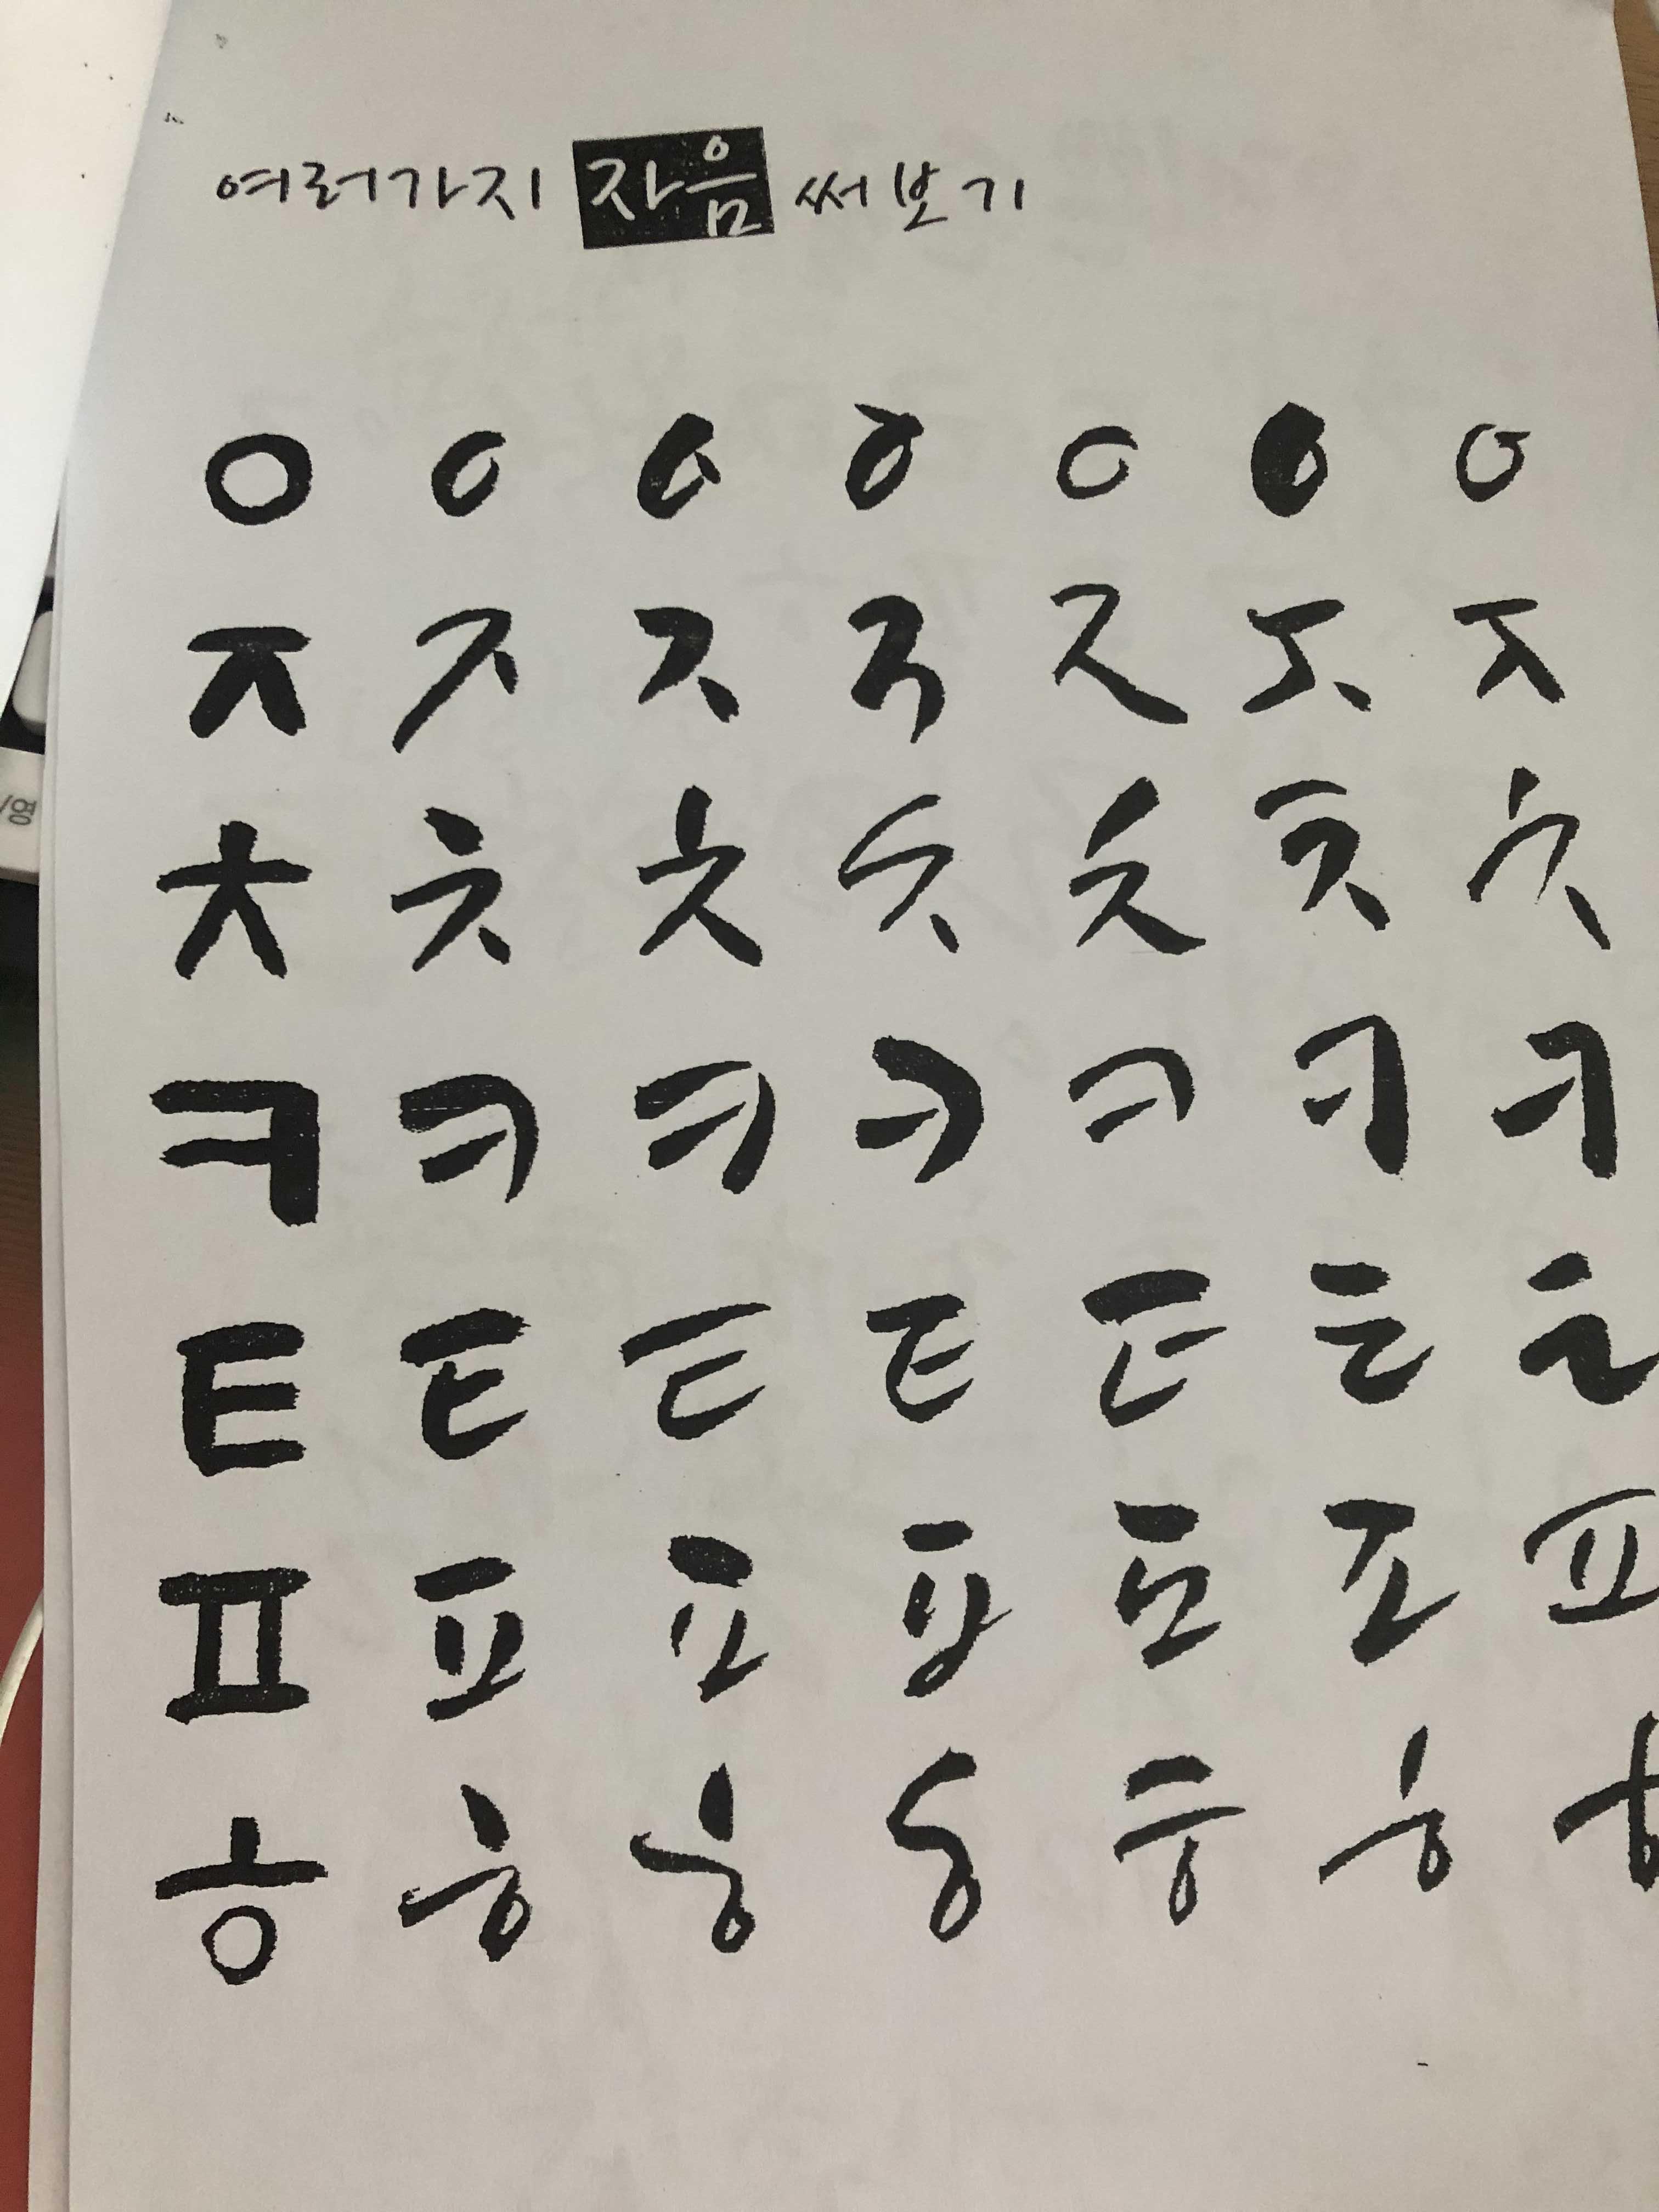 여러가지 자음 써보기
ㅇ ㅇ ㅇ ㅇ ㅇ ㅇ ㅇ
ㅈ ㅈ ㅈ ㅈ ㅈ ㅈ ㅈ
ㅊ ㅊ ㅊ ㅊ ㅊ ㅊ ㅊ
ㅋ ㅋ ㅋ ㅋ ㅋ ㅋ ㅋ
ㅌ ㅌ ㅌ ㅌ ㅌ ㅌ ㅌ
ㅍ ㅍ ㅍ ㅍ ㅍ ㅍ ㅍ
ㅎ ㅎ ㅎ ㅎ ㅎ ㅎ ㅎ
/영